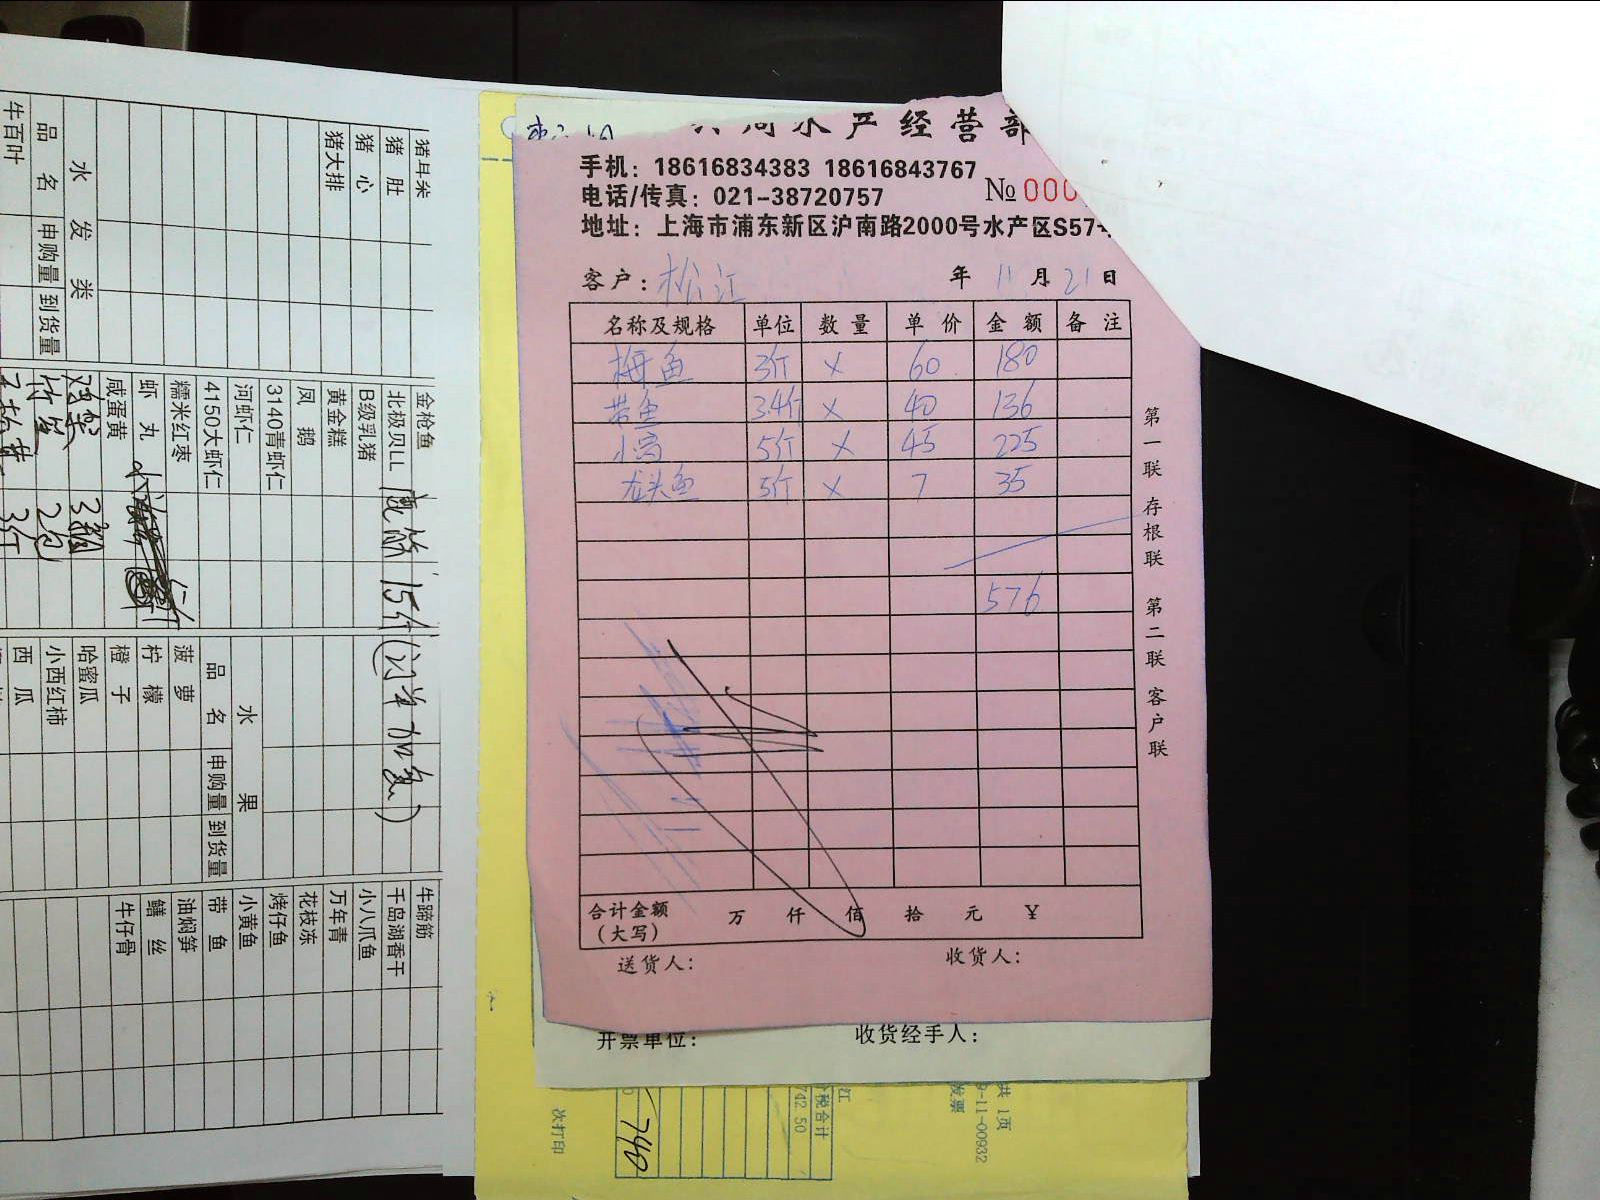 水产经营部
手机：18616834383 18616843767
电话/传真：021-38720757
№ 000
地址：上海市浦东新区沪南路2000号水产区S57
客户：松江 年 11 月 21 日
名称及规格 单位 数量 单价 金额 备注
梅鱼 3斤 × 60 180
带鱼 3.4斤 × 40 136
5斤 × 45 225
龙头鱼 5斤 × 7 35
576
合计金额（大写） 万 仟 佰 拾 元 ￥
送货人： 收货人：
第一联 存根联 第二联 客户联
开票单位： 收货经手人：
共 1页
9-11-00932
发票
江
税合计
742.50
740
次打印
猪肚
猪心
猪大排
水发类
品名 申购量 到货量
牛百叶
金枪鱼
北极贝LL
B级乳猪
黄金糕
凤鹅
3140青虾仁
河虾仁
4150大虾仁
糯米红枣
虾丸
咸蛋黄
15斤
2包
3斤
水果
品名 申购量 到货量
菠萝
柠檬
橙子
哈蜜瓜
小西红柿
西瓜
牛蹄筋
千岛湖香干
小八爪鱼
万年青
花枝冻
烤仔鱼
小黄鱼
带鱼
油焖笋
鳝丝
牛仔骨